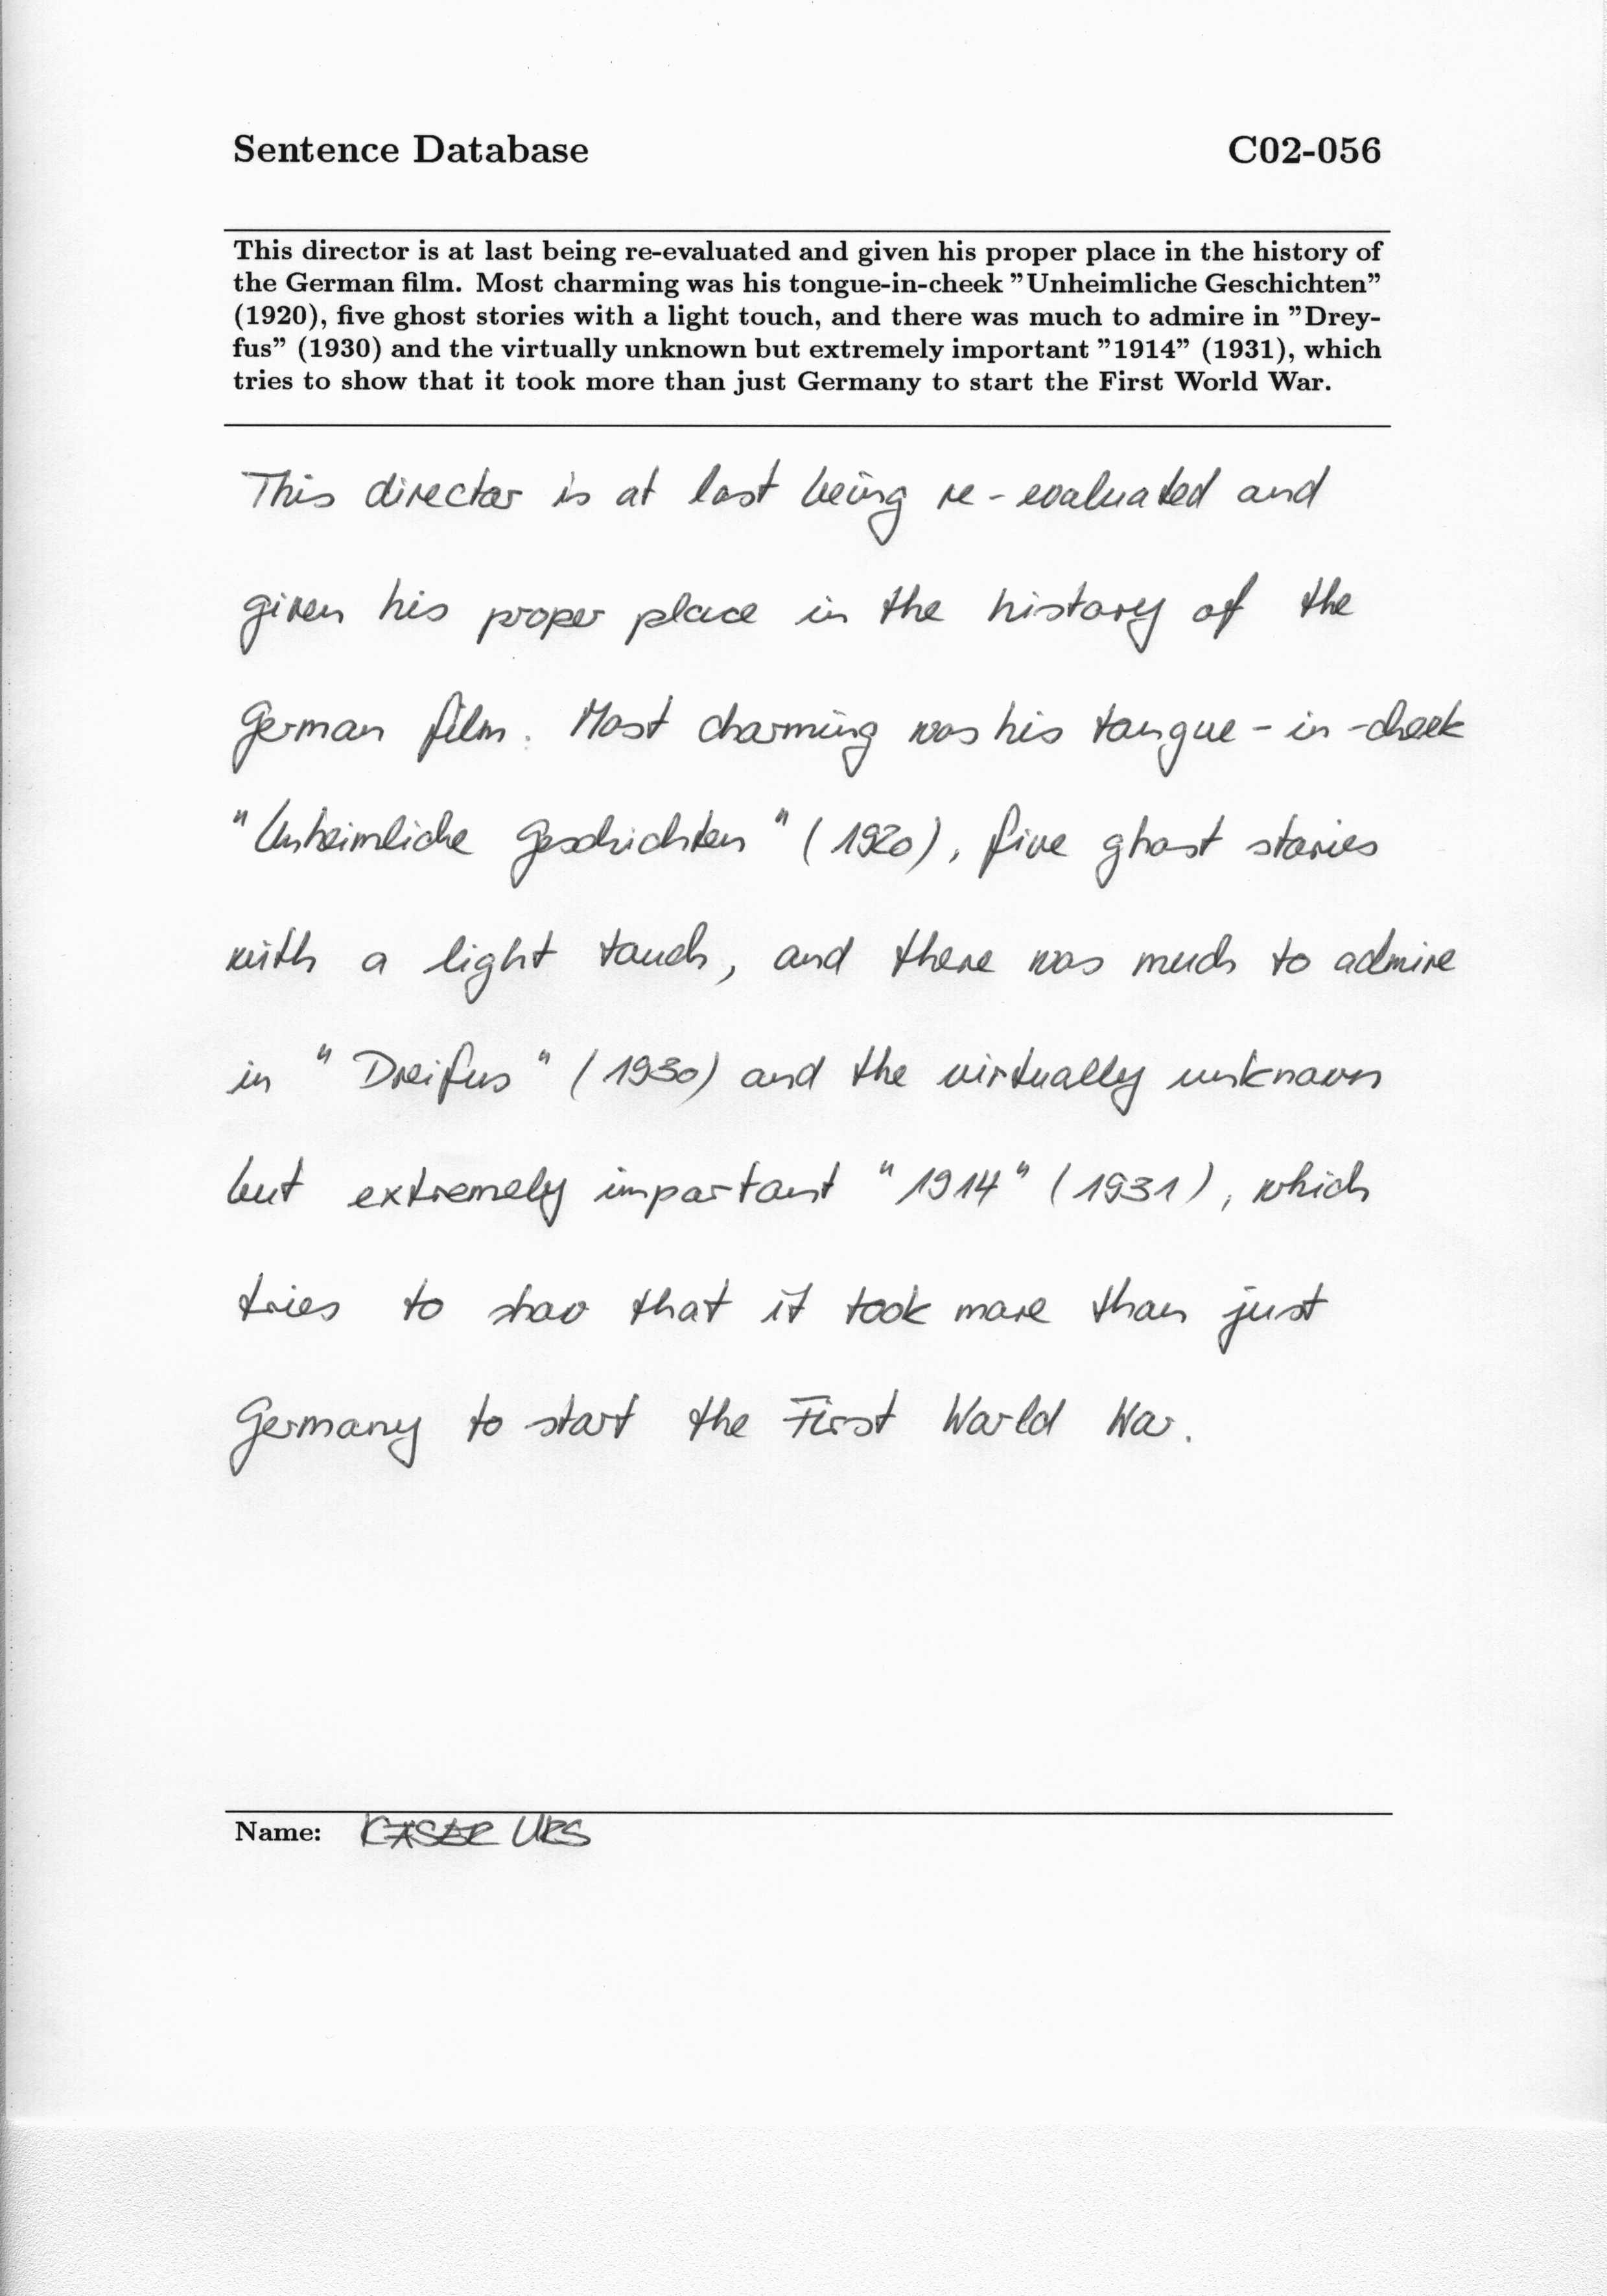 Sentence Database C02-056
This director is at last being re-evaluated and given his proper place in the history of
the German film. Most charming was his tongue-in-cheek ”Unheimliche Geschichten”
(1920), five ghost stories with a light touch, and there was much to admire in ”Drey-
fus” (1930) and the virtually unknown but extremely important ”1914” (1931), which
tries to show that it took more than just Germany to start the First World War.
This director is at last being re-evaluated and
given his proper place in the history of the
German film. Most charming was his tongue-in-cheek
"Unheimliche Geschichten" (1920), five ghost stories
with a light touch, and there was much to admire
in "Dreifus" (1930) and the virtually unknown
but extremely important "1914" (1931), which
tries to show that it took more than just
Germany to start the First World War.
Name: KASER URS